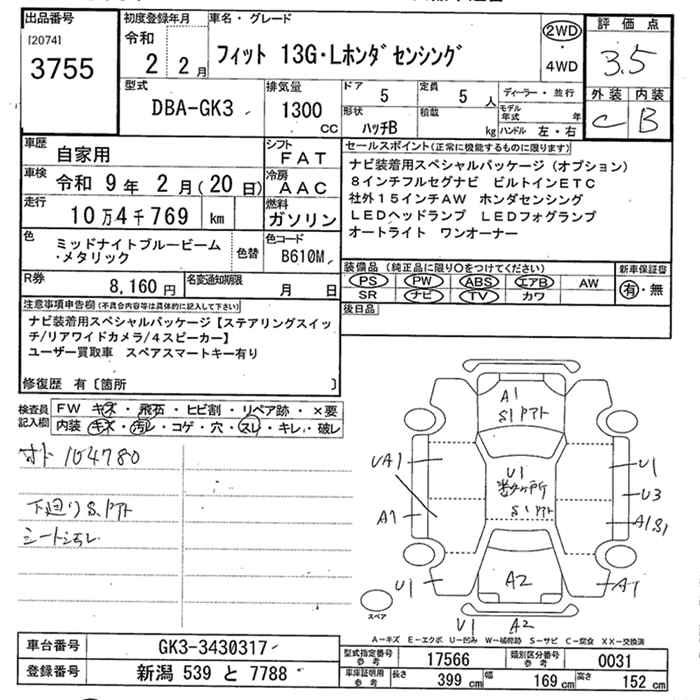 出品番号
[2074]
3755
初度登録年月
令和
2 2月
車名・グレード
フィット 13G・Lホンダセンシング
2WD
・
4WD
評価点
3.5
外装 内装
C B
型式
DBA-GK3
排気量
1300
cc
ドア 5
定員 5人
形状 ハッチB
積載 kg
ディーラー・並行
モデル年式 年
ハンドル 左・右
車歴
自家用
シフト
FAT
車検
令和 9年 2月(20日)
冷房
AAC
走行
10万4千769 km
燃料
ガソリン
色
ミッドナイトブルービーム
・メタリック
色替
色コード
B610M
R券
8,160円
名変通知期限
月 日
セールスポイント(正常に機能するものに限ります)
ナビ装着用スペシャルパッケージ(オプション)
8インチフルセグナビ ビルトインETC
社外15インチAW ホンダセンシング
LEDヘッドランプ LEDフォグランプ
オートライト ワンオーナー
装備品(純正品に限り○をつけてください)
PS PW ABS エアB AW
SR ナビ TV カワ
新車保証書
有・無
後日品
注意事項申告欄(不具合内容等は具体的に記入して下さい)
ナビ装着用スペシャルパッケージ【ステアリングスイッ
チ/リアワイドカメラ/4スピーカー】
ユーザー買取車 スペアスマートキー有り
修復歴 有〔箇所 〕
検査員
記入欄
FW キズ・飛石・ヒビ割・リペア跡・×要
内装 キズ・汚レ・コゲ・穴・スレ・キレ・破レ
メーター 104780
下廻りS,Pアト
シートシミ
A1
S1 Pアト
UA1
A1
U1
U1
S1 Pアト
U1
U3
A1S1
A1
A2
U1 A2
スペア
A−キズ E−エクボ U−凹み W−補修跡 S−サビ C−腐食 XX−交換済
車台番号
GK3-3430317
登録番号
新潟 539 と 7788
型式指定番号
参考
17566
類別区分番号
参考
0031
車庫証明用
参考
長さ 399 cm
幅 169 cm
高さ 152 cm